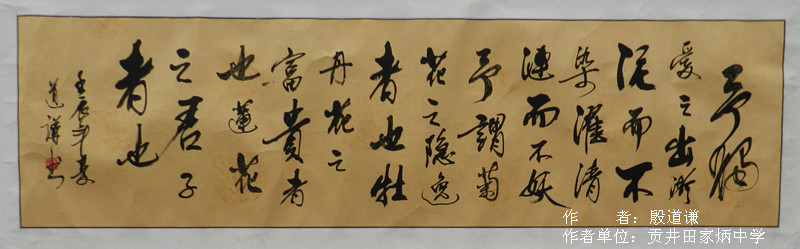 予獨
愛之出淤
泥而不
染濯清
漣而不妖
予謂菊
花之隐逸
者也牡
丹花之
富貴者
也蓮花
之君子
者也
壬辰年
道謙书
作　　者：殷道谦
作者单位：贡井田家炳中学